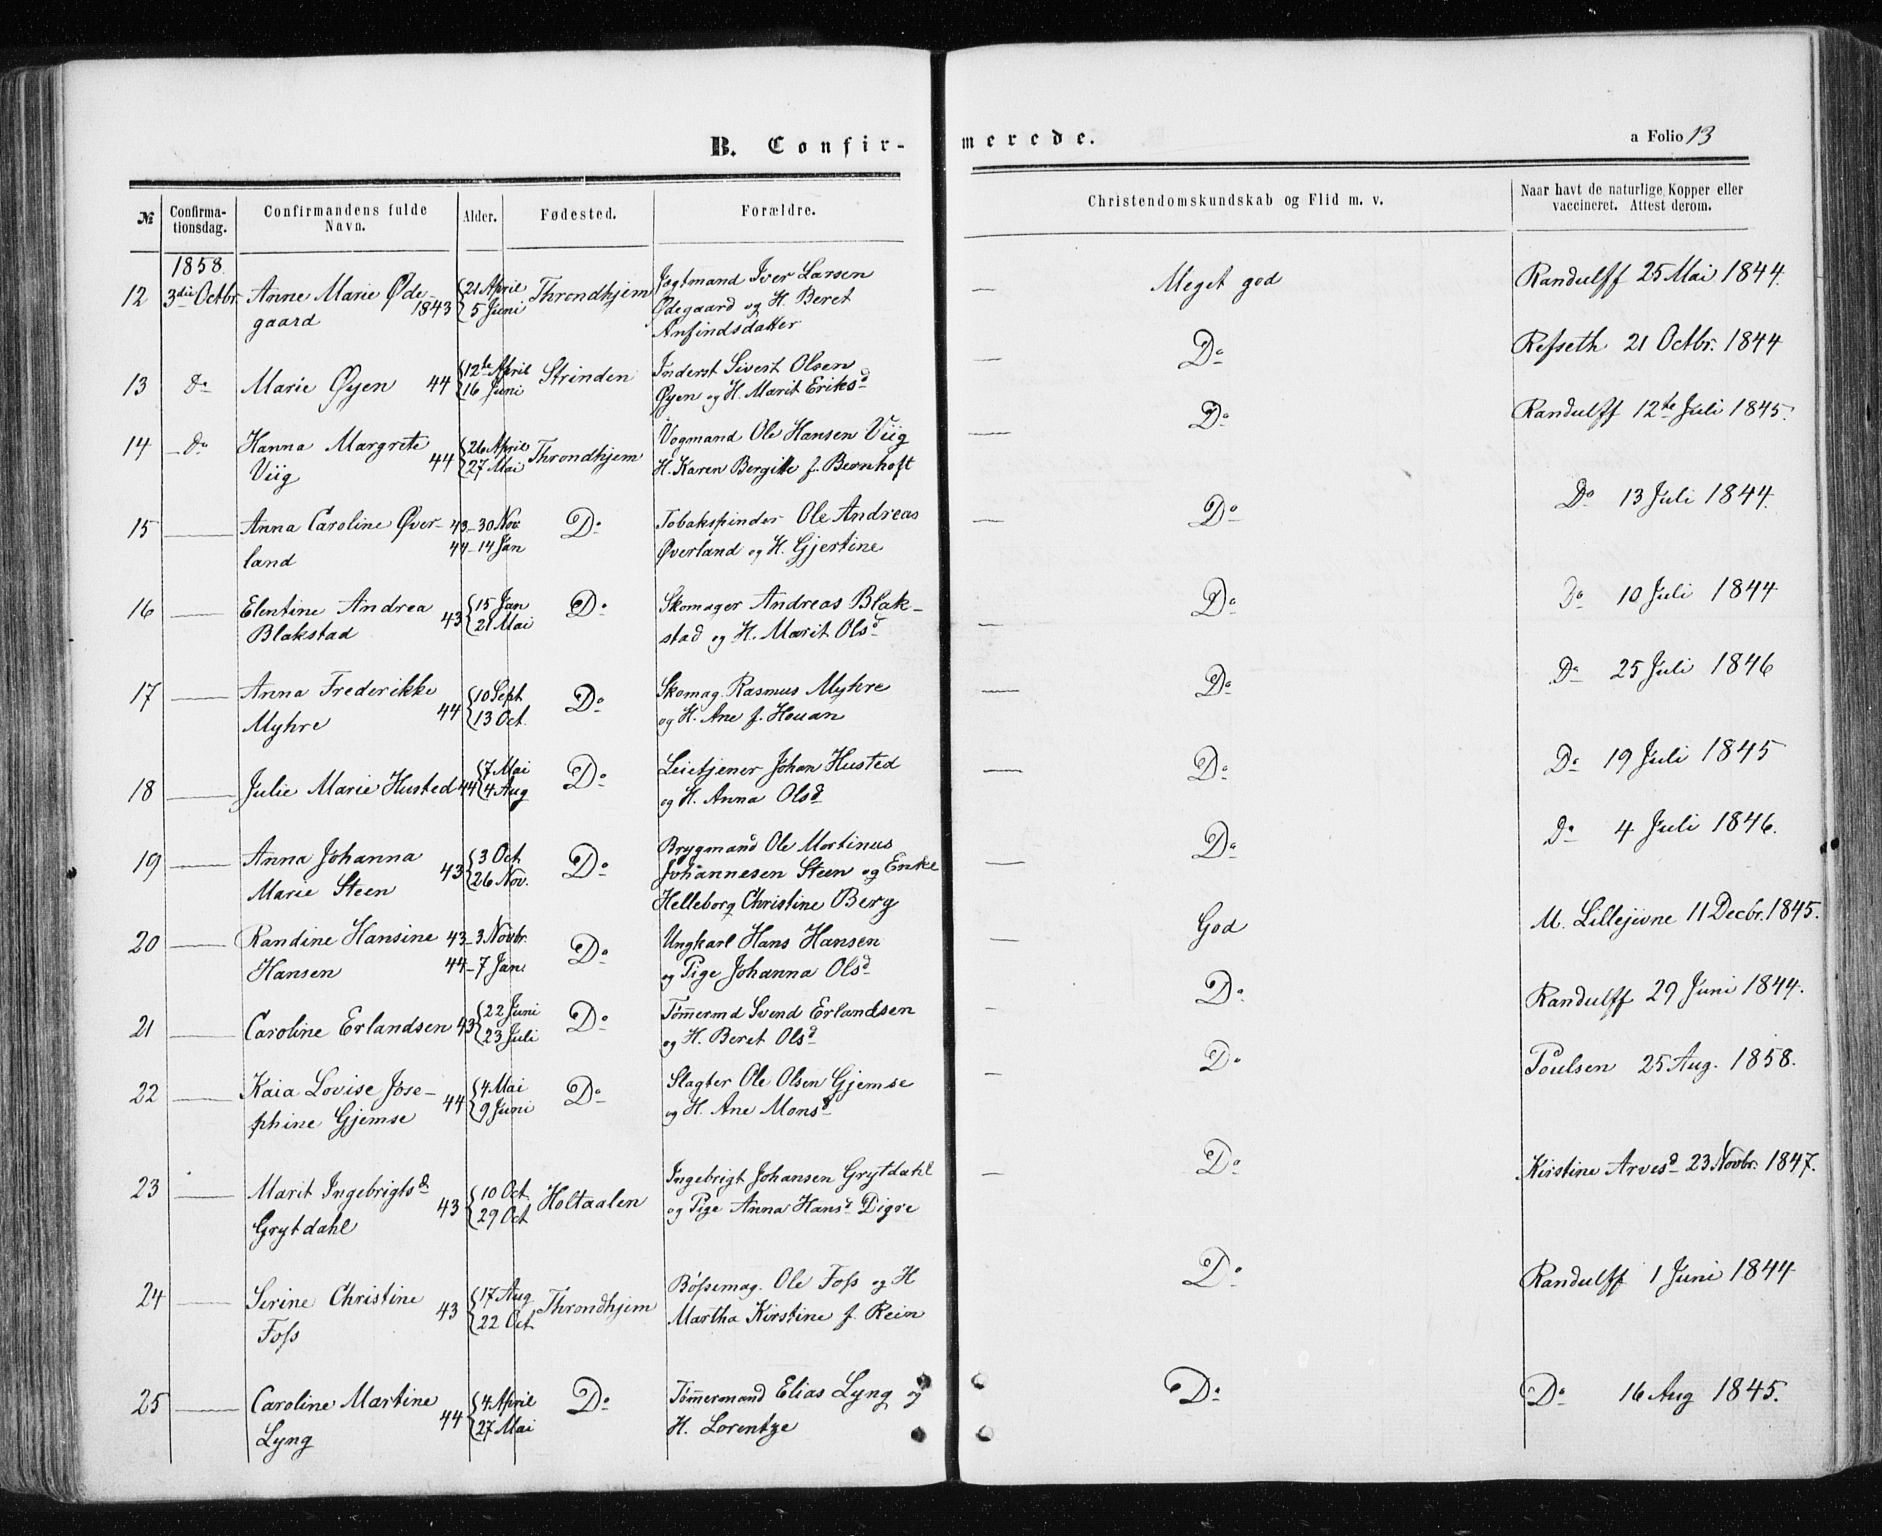 B. Confir-
merede.
a Folio 13
№
Confirma-
tionsdag.
Confirmandens fulde
Navn.
Alder.
Fødested.
Forældre.
Christendomskundskab og Flid m. v.
Naar havt de naturlige Kopper eller
vaccineret. Attest derom.
1858.
12 3die Octbr. Anne Marie Øde- 1843 21 April Throndhjem Jagtmand Iver Larsen — Meget god Randulff 25 Mai 1844.
gaard 5 Juni Ødegaard og H. Beret
Anfindsdatter
13 Do Marie Øyen 44 12te April Strinden Inderst Sivert Olsen — Do Refseth 21 Octbr. 1844
16 Juni Øyen og H. Marit Eriksd
14 Do Hanna Margrete 44 26 April Throndhjem Vogmand Ole Hansen Viig — Do Randulff 12te Juli 1845.
Viig 27 Mai H. Karen Bergitte f. Bernhoft
15 — Anna Caroline Øver- 43 - 30 Nov. Do Tobakspinder Ole Andreas — Do Do 13 Juli 1844.
land 44 - 14 Jan Øverland og H. Gjertine
16 — Elentine Andrea 43 15 Jan Do Skomager Andreas Blak- — Do Do 10 Juli 1844
Blakstad 21 Mai stad og H. Marit Olsd
17 — Anna Frederikke 44 10 Sept Do Skomag. Rasmus Myhre — Do Do 25 Juli 1846
Myhre 13 Oct. og H. Ane f. Houan
18 — Julie Marie Husted 44 7 Mai Do Leietjener Johan Husted — Do Do 19 Juli 1845
4 Aug og H. Anna Olsd
19 — Anna Johanna 43 3 Oct Do Brygmand Ole Martinus — Do Do 4 Juli 1846.
Marie Steen 26 Nov. Johannesen Steen og Enke
Helleborg Christine Berg
20 — Randine Hansine 43 - 3 Novbr. Do Ungkarl Hans Hansen — God M. Lillejivne 11 Decbr. 1845.
Hansen 44 - 7 Jan. og Pige Johanna Olsd
21 — Caroline Erlandsen 43 22 Juni Do Tømermd Svend Erlandsen — Do Randulff 29 Juni 1844.
23 Juli og H. Beret Olsd
22 — Kaia Lovise Jose- 44 4 Mai Do Slagter Ole Olsen Gjemse — Do Poulsen 25 Aug. 1858.
phine Gjemse 9 Juni og H. Ane Monsd
23 — Marit Ingebrigtsd 43 10 Oct. Holtaalen Ingebrigt Johansen Grytdahl — Do Kirstine Arvesd 23 Novbr. 1847.
Grytdahl 29 Oct og Pige Anna Hansd Digre
24 — Serine Christine 43 17 Aug Throndhjem Bøfsemag. Ole Fofs og H Do Randulff 1 Juni 1844
Fofs 22 Oct Martha Kirstine f. Rein
25 — Caroline Martine 44 4 April Do Tømermand Elias Lyng og Do Do 16 Aug 1845.
Lyng 27 Mai H. Lorentze